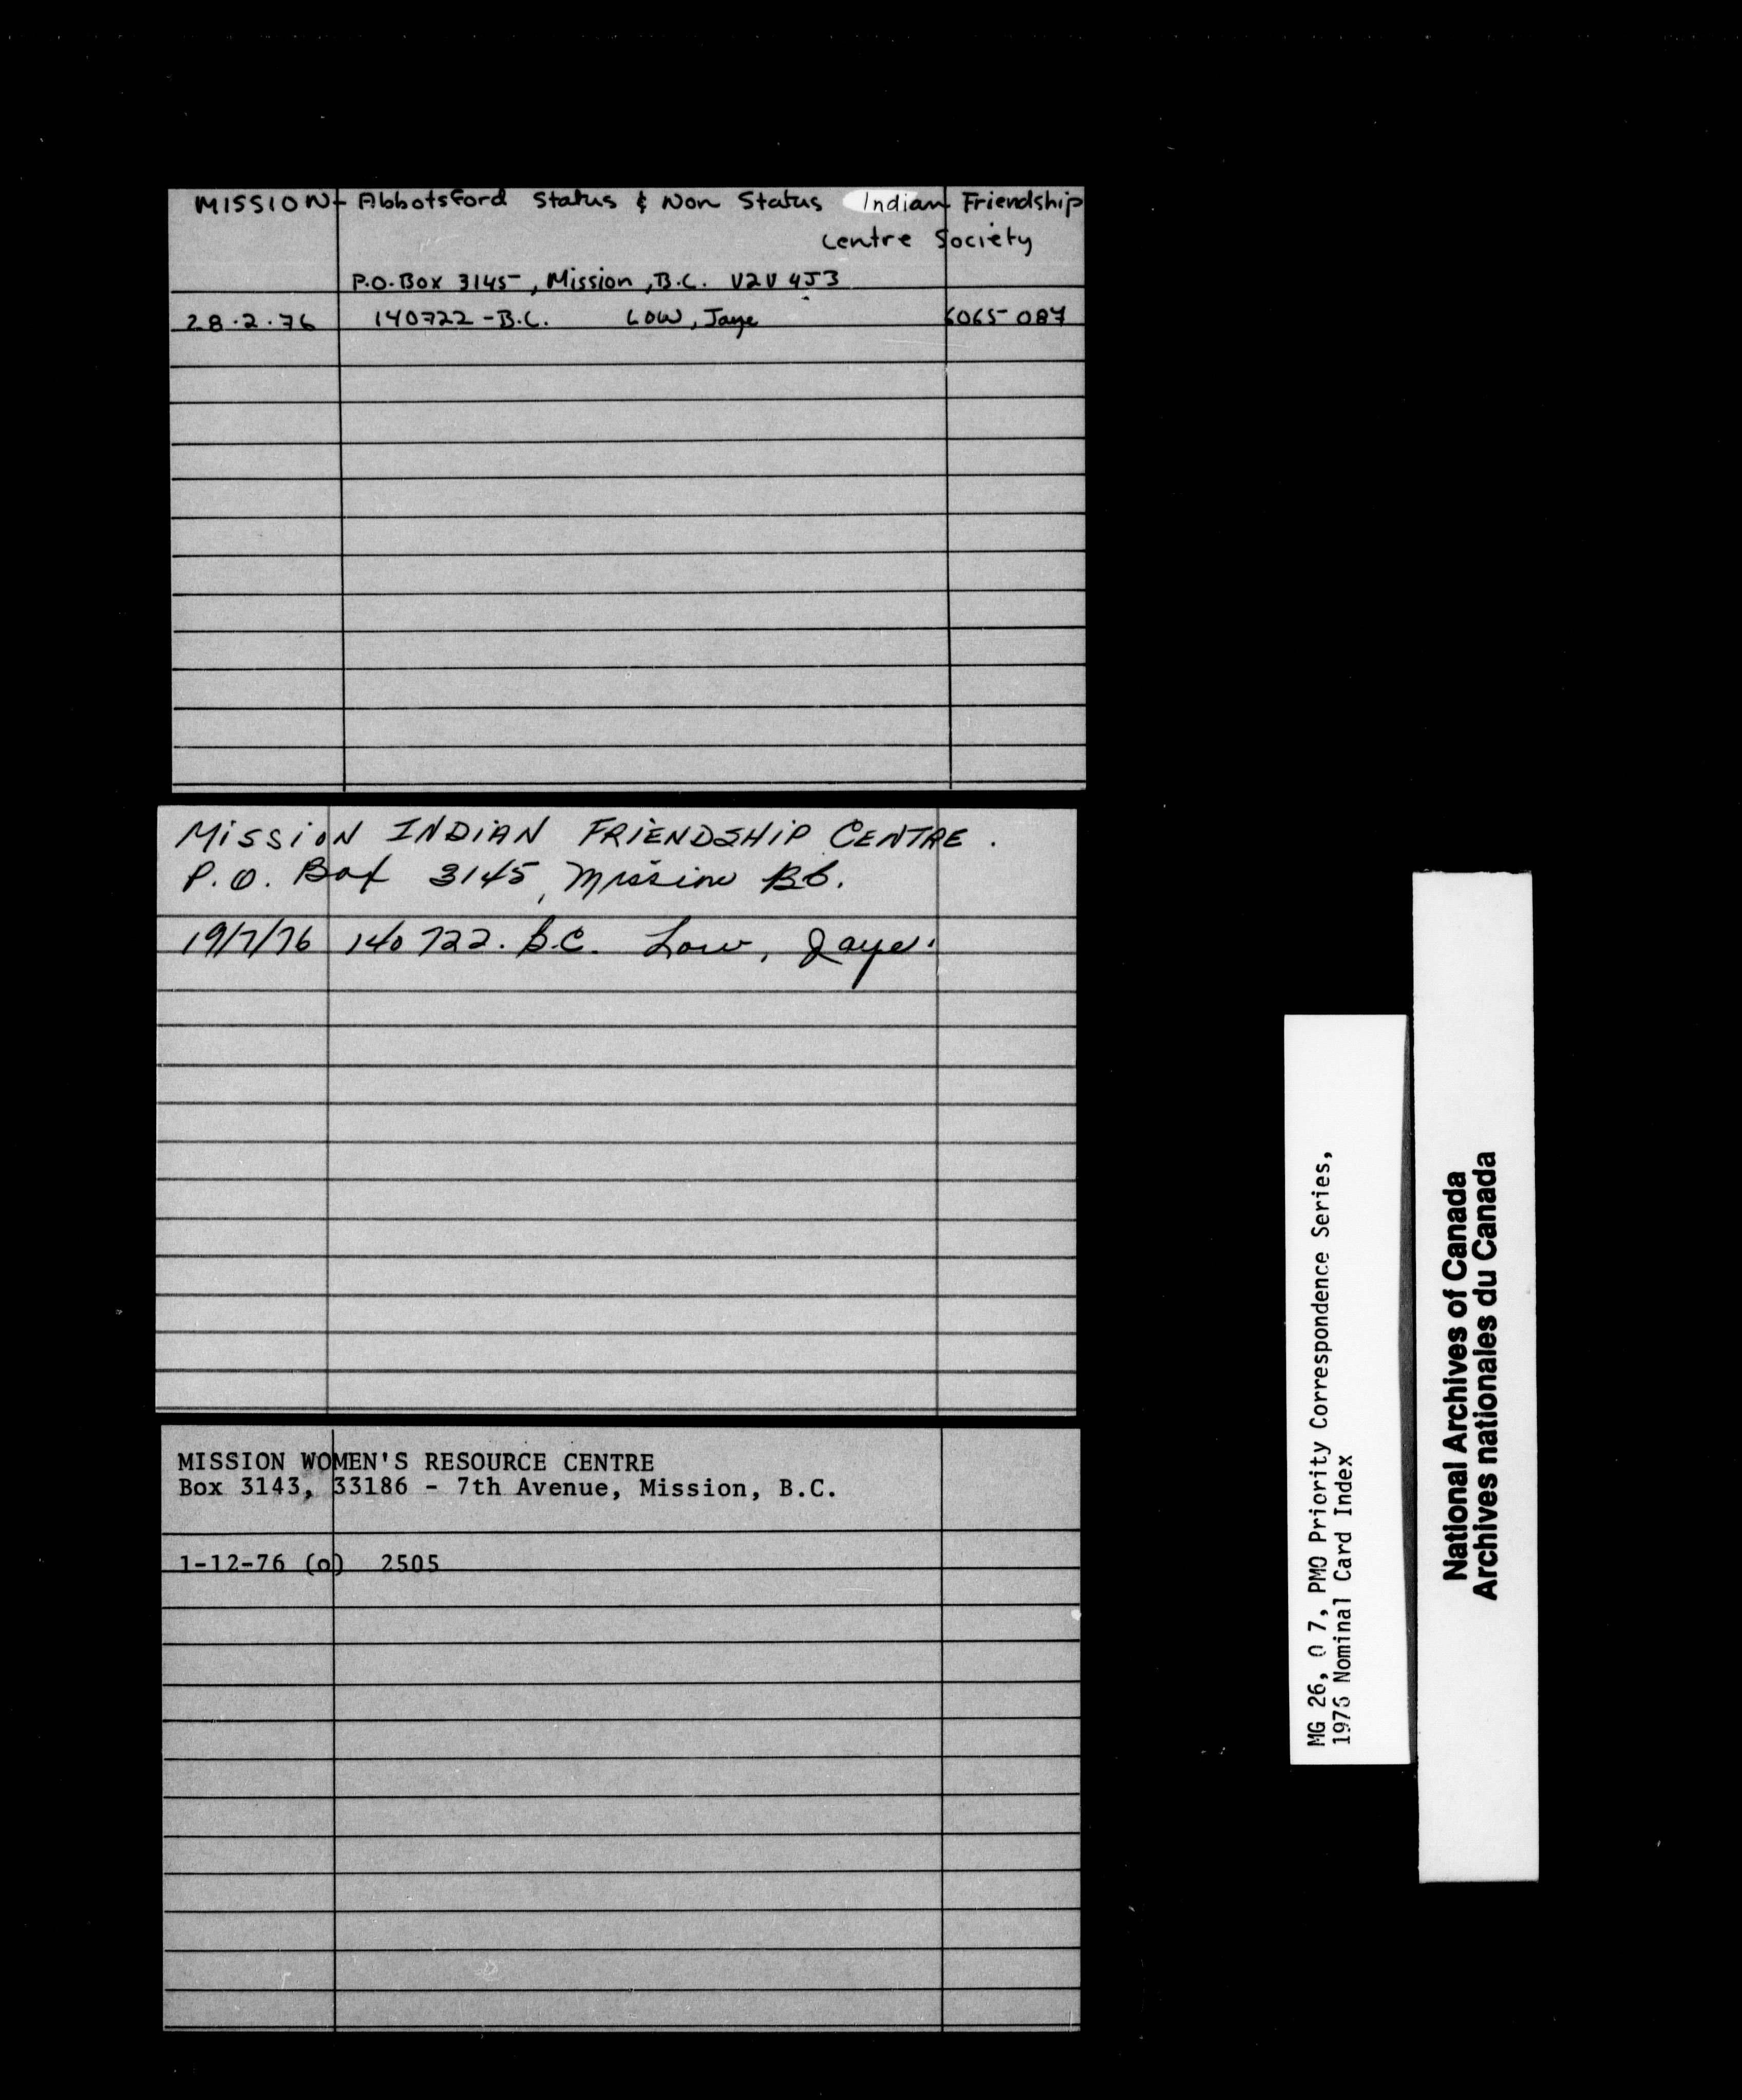 MISSION - Abbotsford Status & Non Status Indian Friendship
Centre Society
P.O. Box 3145, Mission, B.C. V2V 4J3
28.2.76 140722 - B.C. LOW, Jaye 6065-087
MISSION INDIAN FRIENDSHIP CENTRE.
P.O. Box 3145, Mission BC.
19/7/76 140722. B.C. Low, Jaye.
MISSION WOMEN'S RESOURCE CENTRE
Box 3143, 33186 - 7th Avenue, Mission, B.C.
1-12-76 (o) 2505
MG 26, O 7, PMO Priority Correspondence Series,
1976 Nominal Card Index
National Archives of Canada
Archives nationales du Canada